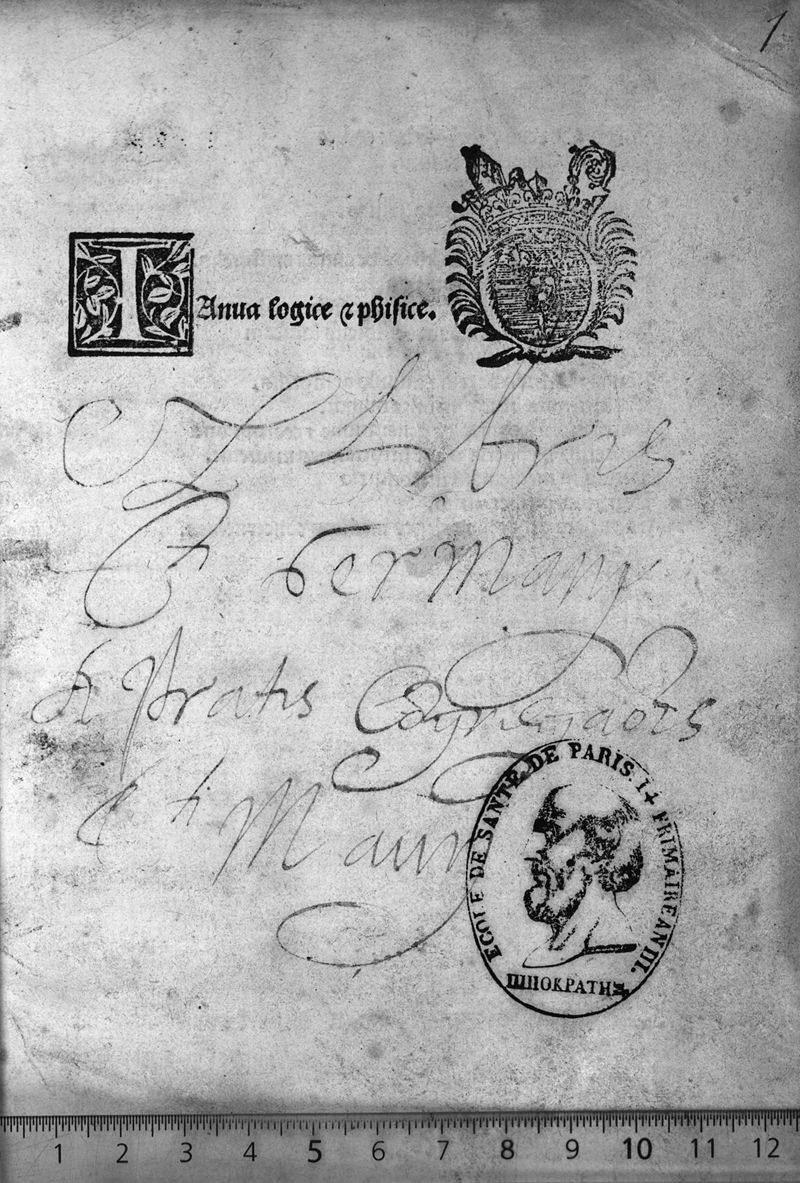 1
IAnua logice ⁊ phisice.
Ex Libris
Sti Germani
A Pratis Congregaõis
Sti Mauri
ECOLE DE SANTÉ DE PARIS 14 FRIMAIRE AN III.
ΙΠΠΟΚΡΑΤΗΣ
1 2 3 4 5 6 7 8 9 10 11 12